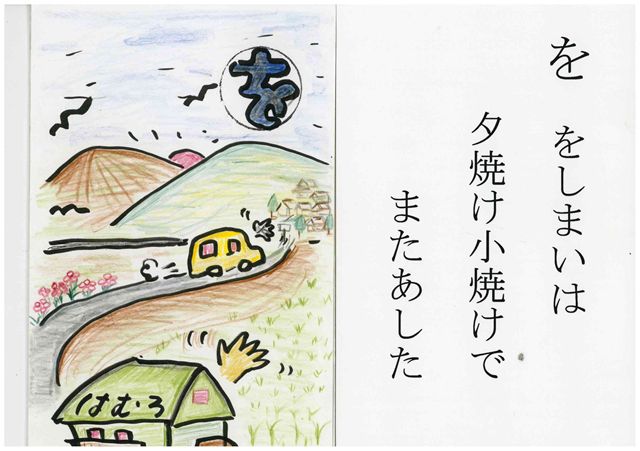 を
をしまいは
夕焼け小焼けで
またあした
を
はむろ